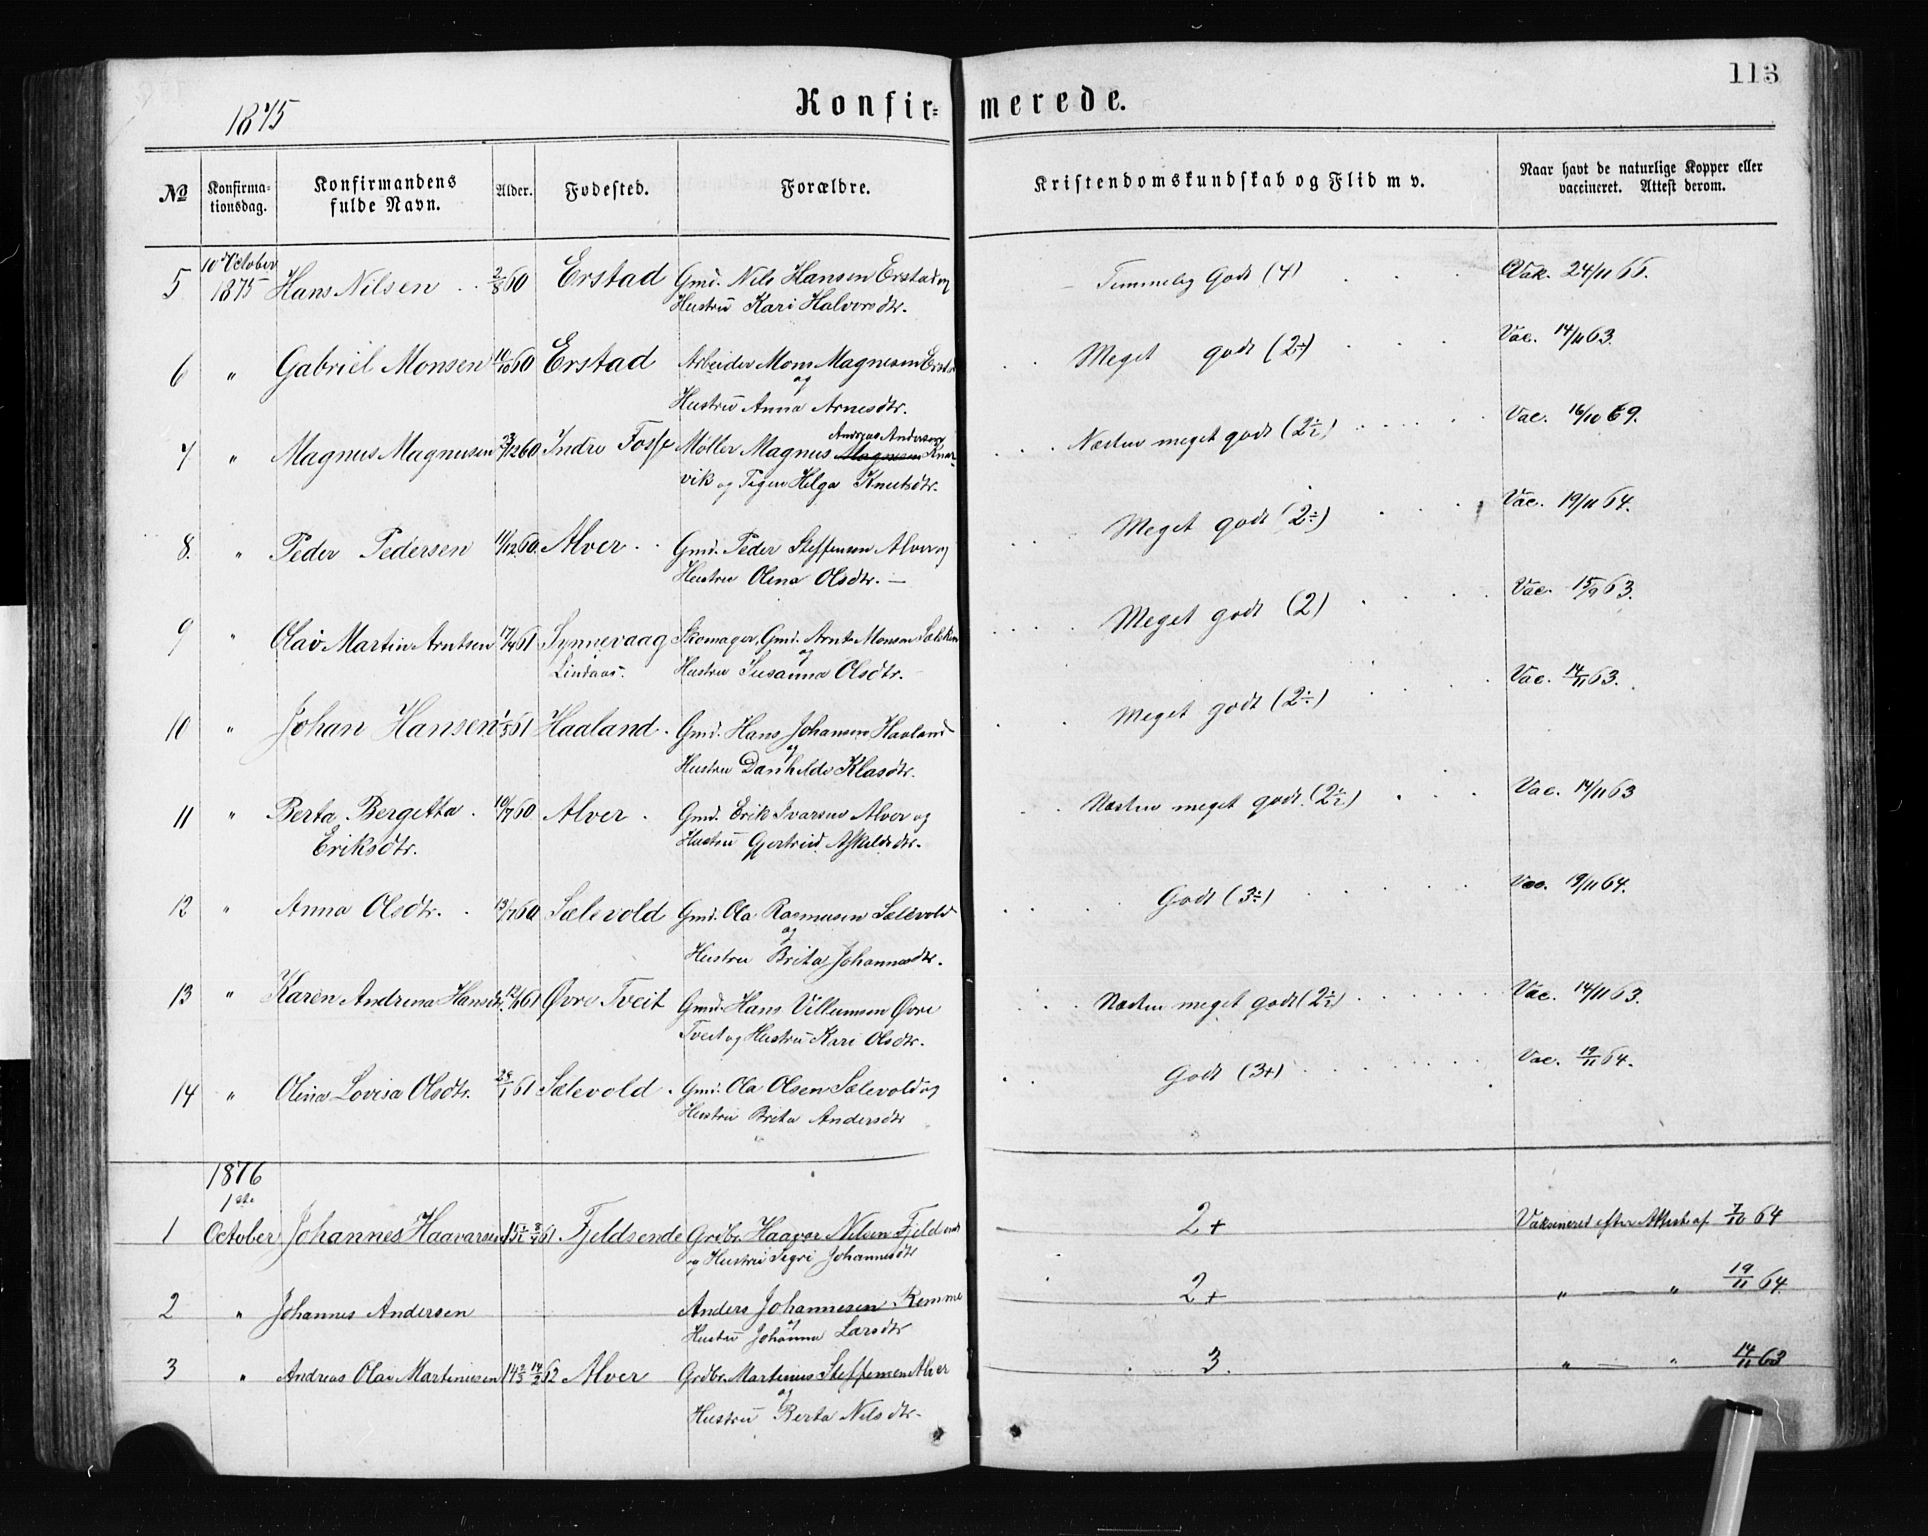 113
1875
Konfir= merede.
No
Konfirma-
tionsdag.
Konfirmandens
fulde Navn.
Alder.
Fødested.
Forældre.
Kristendomskundskab og Flid m v.
Naar havt de naturlige Kopper eller
vaccineret. Attest derom.
5 10 October 1875 Hans Nilsen 2/8 60 Erstad Gmd. Nils Hansen Erstad og
Hustru Kari Halvorsdtr.
Temmelig Godt (4) Vak. 24/11 65.
6 " Gabriel Monsen 11/10 60 Erstad Arbeider Mons Magnesen Erstad
og
Hustru Anna Arnesdtr.
Meget godt (2÷) Vac. 14/11 63.
7 " Magnus Magnusen /12 60 Indre Fosse Møller Magnus Andreas Andersen Knar-
vik og Pigen Helga Knutsdtr.
Næsten meget godt (2½) Vac. 16/10 69.
8. " Peder Pedersen 11/12 60. Alver Gmd. Peder Steffensen Alver og
Hustru Olina Olsdtr. —
Meget godt (2÷) Vac. 19/11 64.
9 " Olai Martin Arntsen 17/4 61 Synnevaag Skomager, Gmd. Arnt Monsen
Lindaas. og
Hustru Susanna Olsdtr.
Meget godt (2) Vac. 15/9 63.
10 " Johan Hansen 1/5 61 Haaland Gmd. Hans Johansen Haaland
og
Hustru Danhilde Klasdtr.
Meget godt (2÷) Vac. 14/11 63.
11 " Berta Bergetta 10/7 60 Alver Gmd. Erik Ivarsen Alver og
Eriksdtr. Hustru Gjertrud Askildsdtr.
Næsten meget godt (2½) Vac. 14/11 63
12 " Anna Olsdtr. 19/7 60 Sælevold Gmd. Ola Rasmusen Sælevold
og
Hustru Brita Johannesdtr.
Godt (3÷) Vac. 19/11 64.
13 " Karen Andrina Hansdtr. 12/1 61 Øvre Tveit Gmd. Hans Villumsen Øvre
Tveit og Hustru Kari Olsdtr.
Næsten meget godt (2½) Vac. 14/11 63.
14 " Olina Lovisa Olsdtr. 28/1 61 Sælevold Gmd. Ola Olsen Sælevold og
Hustru Brita Andersdtr
Godt (3+) Vac. 19/11 64.
1876
1ste
1 October Johannes Haavarsen 15½ 61. Fjeldsende Grdbr. Haavar Nilsen Fjeldsende
og Hustru Sigri Johannesdtr
2+ Vaksineret efter Attest af 7/10 64
2 " Johannes Andersen Anders Johannesen Remme
og
Hustru Johanna Larsdtr
2+ " — " 19/11 64.
3 " Andreas Olai Martinusen 14⅔ 14/2 62 Alver Grdbr. Martinus Steffensen Alver
og
Hustru Berta Nilsdtr.
3. " — " 14/11 63